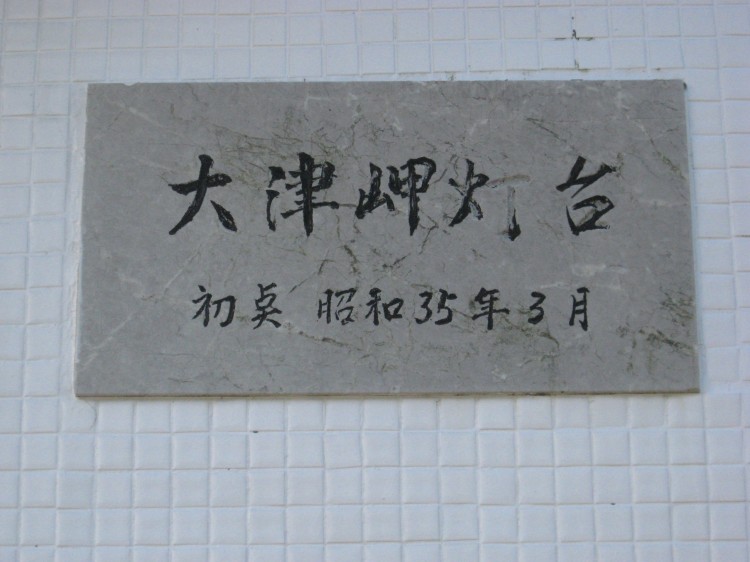 大津岬灯台
初点 昭和35年3月